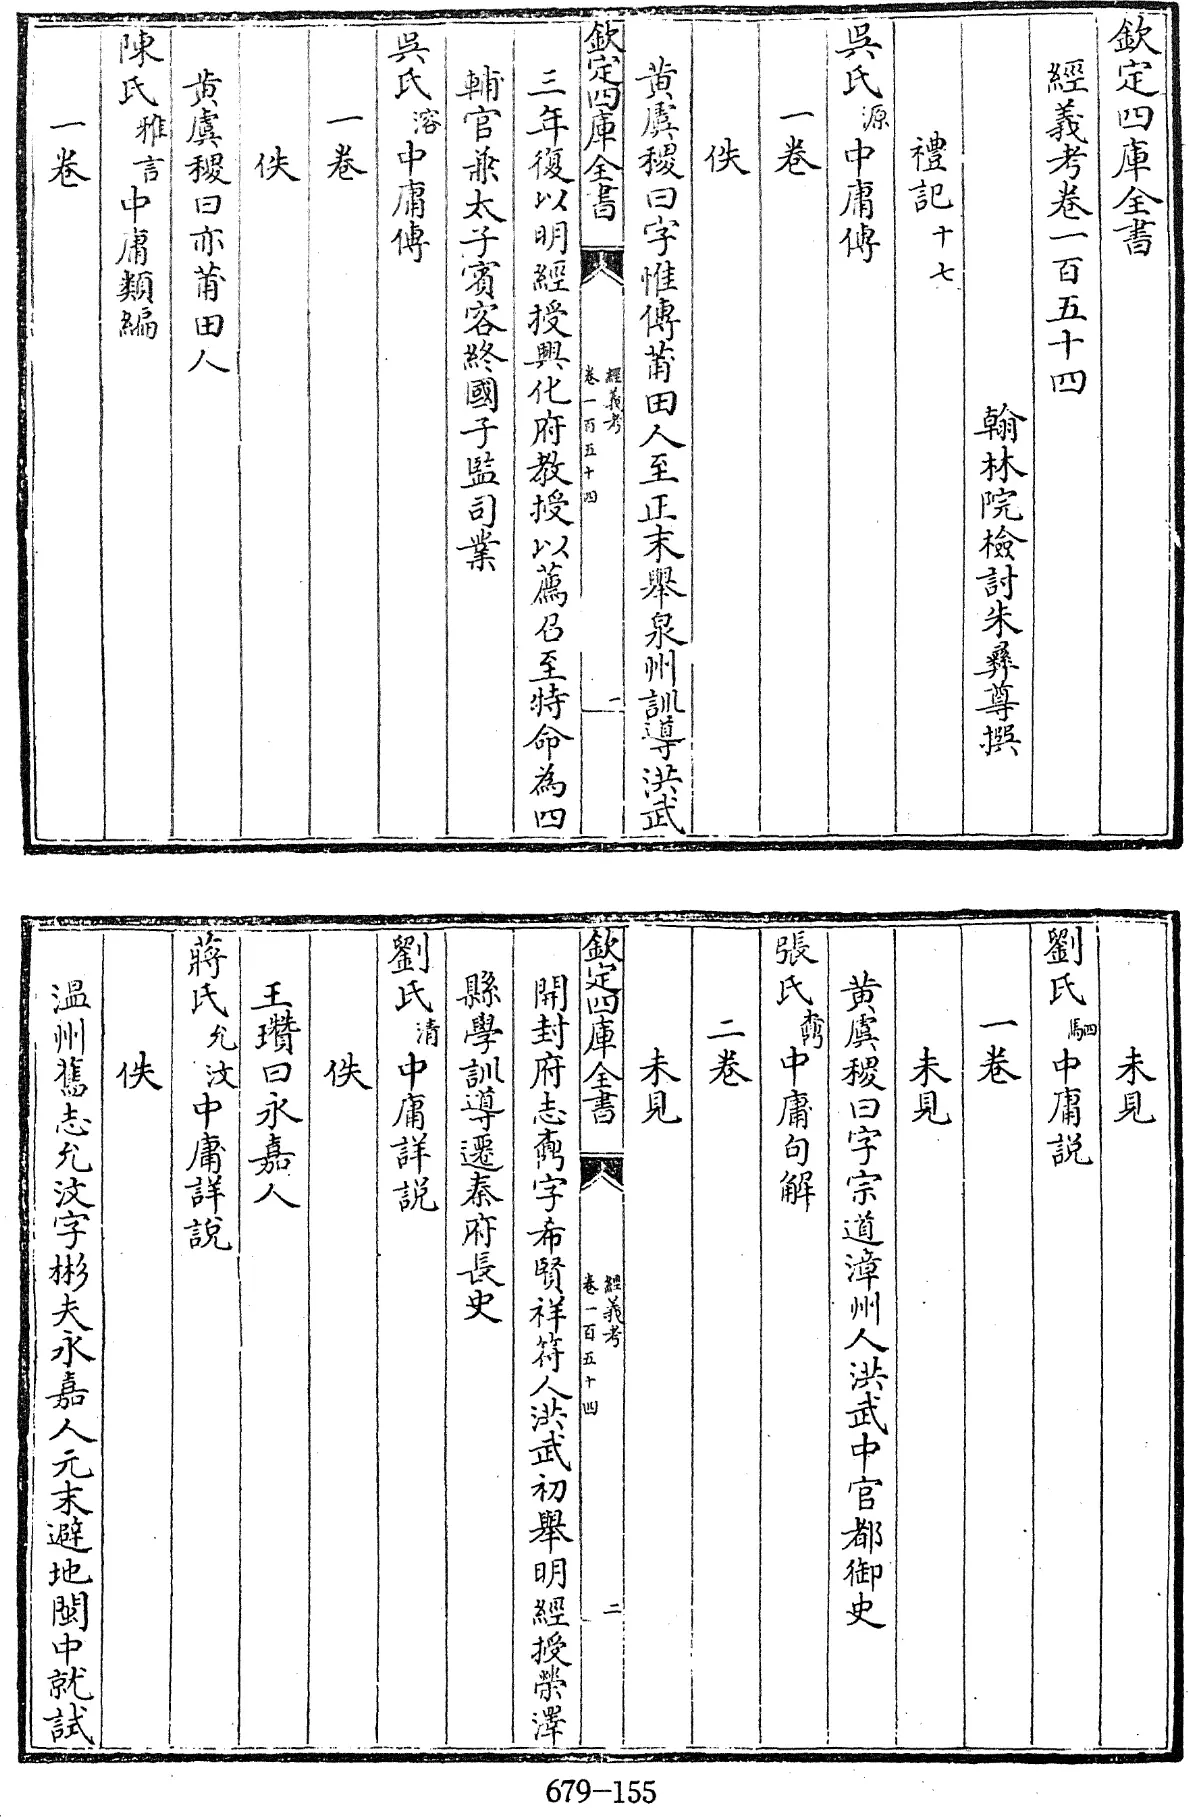 欽定四庫全書
經義考卷一百五十四
翰林院檢討朱彝尊撰
禮記十七
吳氏源中庸傳
一卷
佚
黃虞稷曰字惟傳莆田人至正末舉泉州訓導洪武
欽定四庫全書 經義考 卷一百五十四 一
三年復以明經授興化府教授以薦召至特命為四
輔官兼太子賓客終國子監司業
吳氏溶中庸傳
一卷
佚
黃虞稷曰亦莆田人
陳氏雅言中庸類編
一卷
未見
劉氏駟中庸説
一卷
未見
黃虞稷曰字宗道漳州人洪武中官都御史
張氏中庸句解
二卷
未見
欽定四庫全書 經義考 卷一百五十四 二
開封府志字希賢祥符人洪武初舉明經授滎澤
縣學訓導遷秦府長史
劉氏清中庸詳説
佚
王瓚曰永嘉人
蔣氏允汶中庸詳説
佚
温州舊志允汶字彬夫永嘉人元末避地閩中就試
679-155